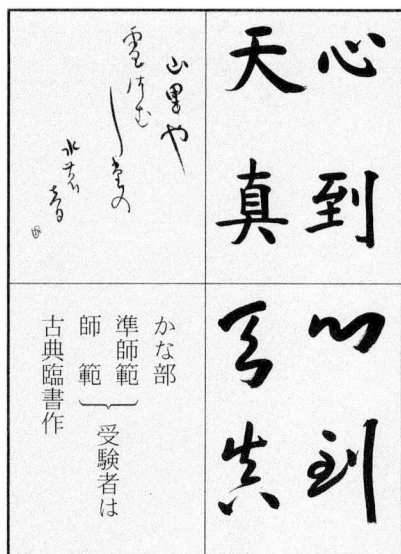 心到
天真
心到
天真
山里や
雪つむ
したの
水の音
かな部
準師範
師範
受験者は
古典臨書作